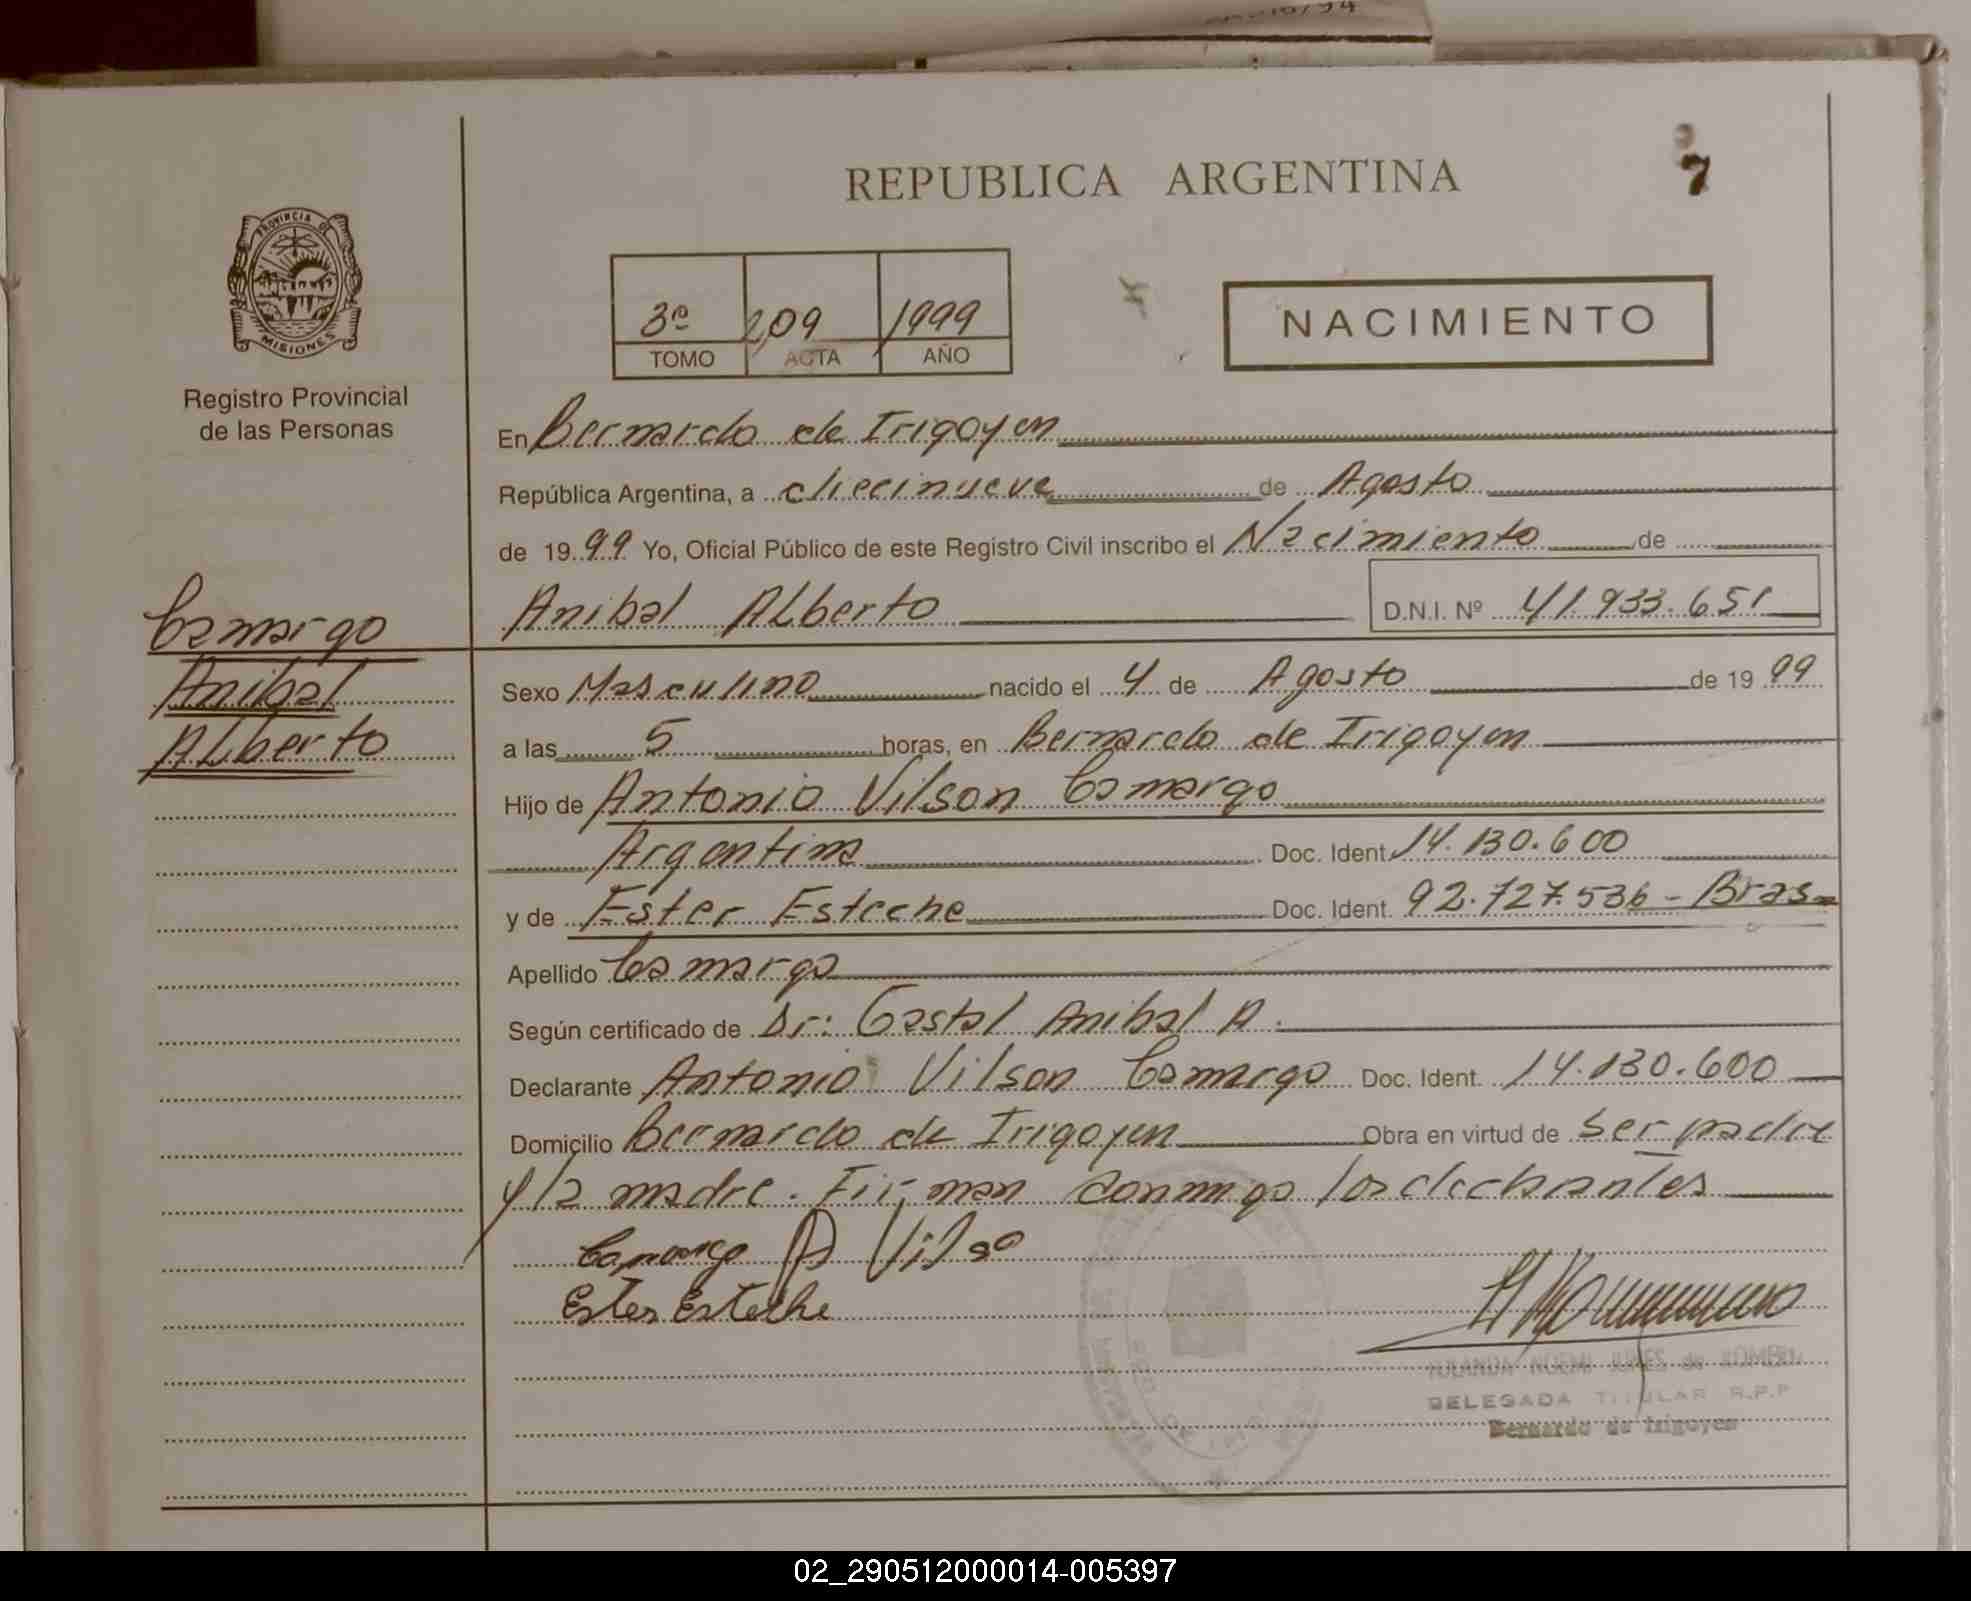 7
REPUBLICA ARGENTINA
PROVINCIA DE
MISIONES
Registro Provincial
de las Personas
3º 209 1999
TOMO ACTA AÑO
NACIMIENTO
En Bernardo de Irigoyen
República Argentina, a diecinueve de Agosto
de 1999 Yo, Oficial Público de este Registro Civil inscribo el Nacimiento de
Camargo
Anibal
Alberto
Anibal Alberto D.N.I. Nº 41.933.651
Sexo Masculino nacido el 4 de Agosto de 1999
a las 5 horas, en Bernardo de Irigoyen
Hijo de Antonio Vilson Camargo
Argentina Doc. Ident. 14.130.600
y de Ester Esteche Doc. Ident. 92.727.536 - Bras
Apellido Camargo
Según certificado de Dr: Gastal Anibal A.
Declarante Antonio Vilson Camargo Doc. Ident. 14.130.600
Domicilio Bernardo de Irigoyen Obra en virtud de ser padre
y la madre. Firman conmigo los declarantes
Camargo A Vilso
Ester Esteche
DELEGADA TITULAR R.P.P
Bernardo de Irigoyen
02_290512000014-005397